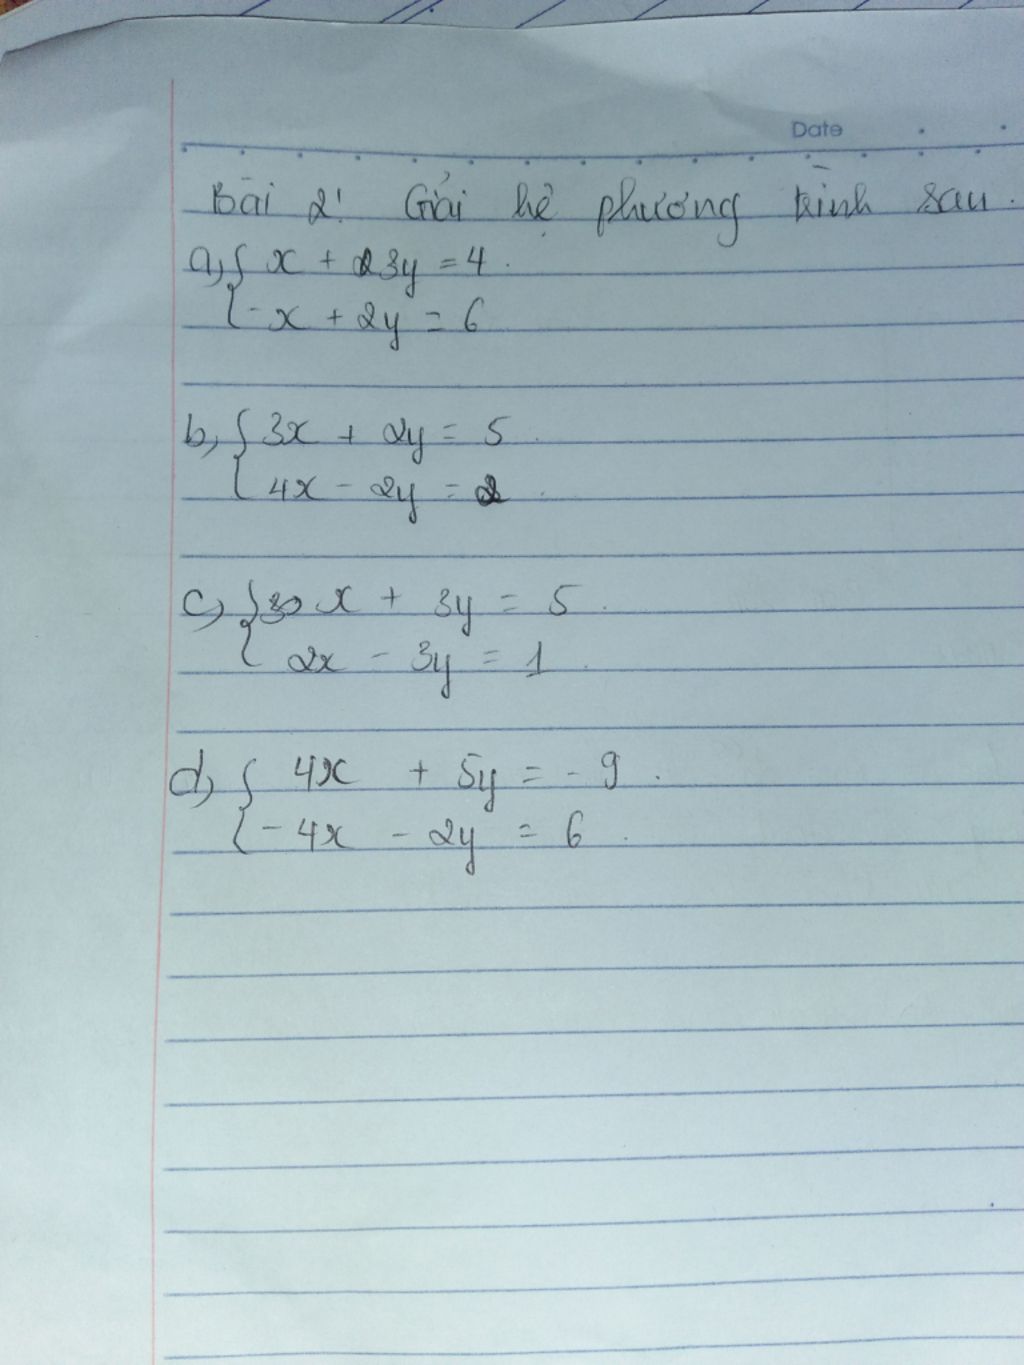 Date
Bài 2! Giải hệ phương trình sau.
a, { x + 3y = 4.
-x + 2y = 6
b, { 3x + 2y = 5.
4x - 2y = 2.
c, { x + 3y = 5.
2x - 3y = 1.
d, { 4x + 5y = -9.
-4x - 2y = 6.